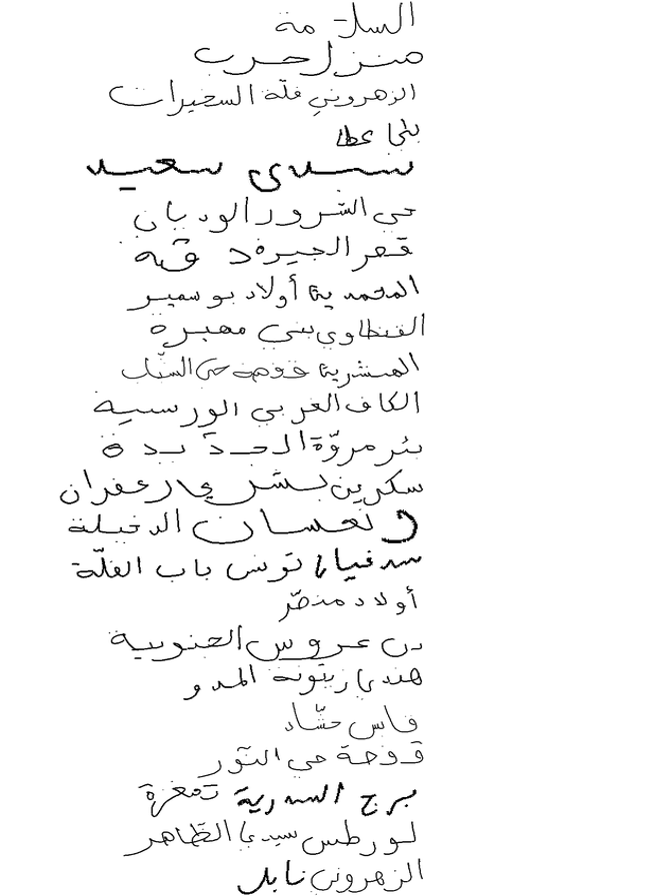 السلامة
منزل حرب
الزهروني فلّة السخيرات
بئما عطا
سيدي سعيد
حي السّرور الوديان
قصر الجيرة دقة
المحمدية أولاد بوسمير
الفنطاوي بني مهيرة
المشرية قفصة حي السنّاب
الكاف الغربي الورسية
بئر مروّة الجديدة
سكرين بشري زعفران
نعسان الدخيلة
سدغيان تونس باب الفلّة
أولاد منصّر
بن عروس الجنوبية
هندي زيتونة المدو
فاس حشّاد
قفصة حي النّور
برج السدرية تمغزة
لورطس سيدي الظّاهر
الزهروني نابل